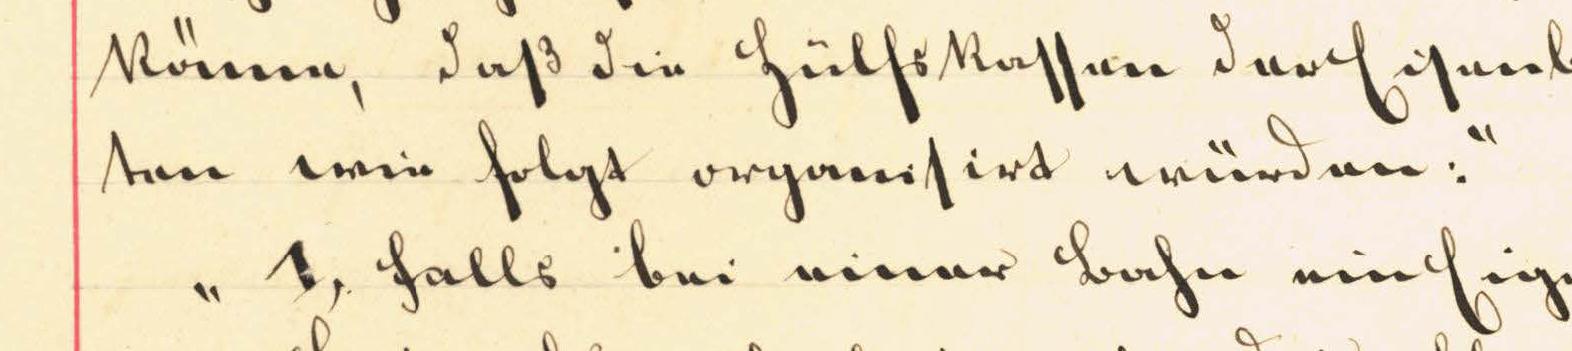 könne, daß die Hülfskassen der Eisenb
ten wie folgt organisirt würden:"
„ 1, Falls bei einer Bahn ein Eige